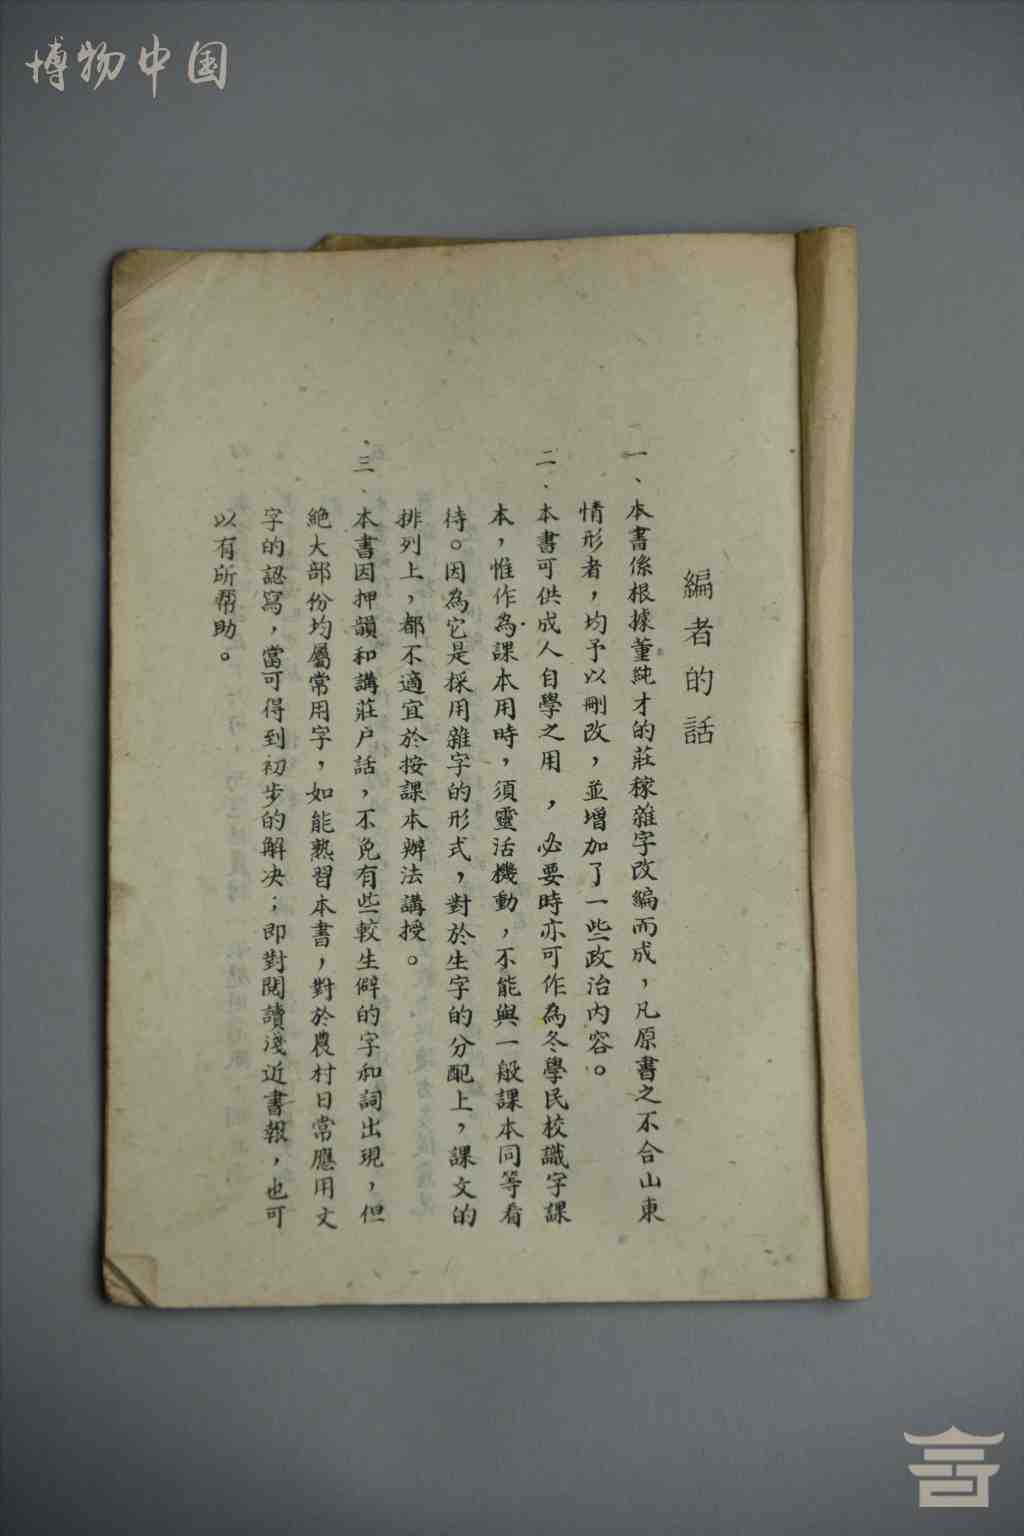 博物中国
編者的話
一、本書係根據董純才的莊稼雜字改編而成，凡原書之不合山東
情形者，均予以刪改，並增加了一些政治內容。
二、本書可供成人自學之用，必要時亦可作為冬學民校識字課
本，惟作為課本用時，須靈活機動，不能與一般課本同等看
待。因為它是採用雜字的形式，對於生字的分配上，課文的
排列上，都不適宜於按課本辦法講授。
三、本書因押韻和講莊户話，不免有些較生僻的字和詞出現，但
絕大部份均屬常用字，如能熟習本書，對於農村日常應用文
字的認寫，當可得到初步的解决；即對閱讀淺近書報，也可
以有所幫助。